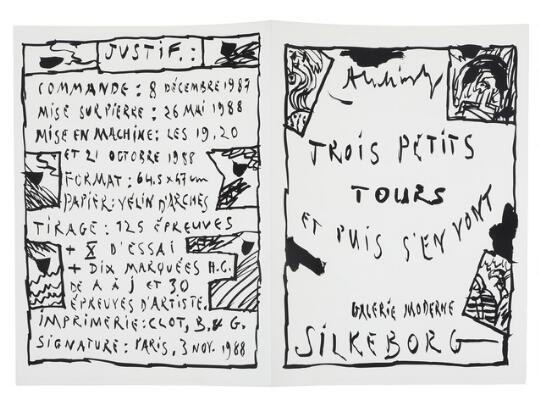 JUSTIF.:
COMMANDE: 8 DÉCEMBRE 1987
MISE SUR PIERRE: 26 MAI 1988
MISE EN MACHINE: LES 19, 20
ET 21 OCTOBRE 1988
FORMAT: 64,5 x 47 cm
PAPIER: VÉLIN D'ARCHES
TIRAGE: 125 ÉPREUVES
+ X D'ESSAI
+ DIX MARQUÉES H.C.
DE A À J ET 30
ÉPREUVES D'ARTISTE.
IMPRIMERIE: CLOT, B. & G.
SIGNATURE: PARIS, 3 NOV. 1988
TROIS PETITS
TOURS
ET PUIS S'EN VONT
GALERIE MODERNE
SILKEBORG